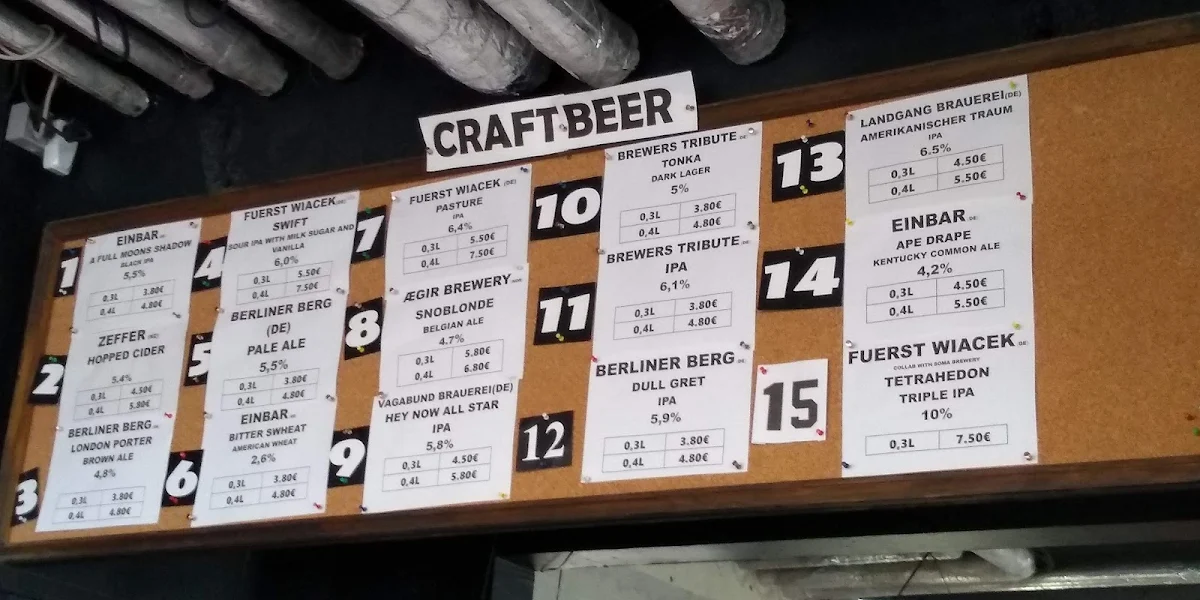 CRAFTBEER
1
EINBAR
A FULL MOONS SHADOW
BLACK IPA
5,5%
0,3L 3.80€
0,4L 4.80€
2
ZEFFER
HOPPED CIDER
5.4%
0,3L 4.50€
0,4L 5.80€
3
BERLINER BERG
LONDON PORTER
BROWN ALE
4,8%
0,3L 3.80€
0,4L 4.80€
4
FUERST WIACEK
SWIFT
SOUR IPA WITH MILK SUGAR AND
VANILLA
6,0%
0,3L 5.50€
0,4L 7.50€
5
BERLINER BERG
(DE)
PALE ALE
5,5%
0,3L 3.80€
0,4L 4.80€
6
EINBAR
BITTER SWHEAT
AMERICAN WHEAT
2,6%
0,3L 3.80€
0,4L 4.80€
7
FUERST WIACEK (DE)
PASTURE
IPA
6,4%
0,3L 5.50€
0,4L 7.50€
8
ÆGIR BREWERY
SNOBLONDE
BELGIAN ALE
4.7%
0,3L 5.80€
0,4L 6.80€
9
VAGABUND BRAUEREI(DE)
HEY NOW ALL STAR
IPA
5,8%
0,3L 4.50€
0,4L 5.80€
10
BREWERS TRIBUTE
TONKA
DARK LAGER
5%
0,3L 3.80€
0,4L 4.80€
11
BREWERS TRIBUTE
IPA
6,1%
0,3L 3.80€
0,4L 4.80€
12
BERLINER BERG
DULL GRET
IPA
5,9%
0,3L 3.80€
0,4L 4.80€
13
LANDGANG BRAUEREI(DE)
AMERIKANISCHER TRAUM
IPA
6.5%
0,3L 4.50€
0,4L 5.50€
14
EINBAR
APE DRAPE
KENTUCKY COMMON ALE
4,2%
0,3L 4.50€
0,4L 5.50€
15
FUERST WIACEK
COLLAB WITH SOMA BREWERY
TETRAHEDON
TRIPLE IPA
10%
0,3L 7.50€